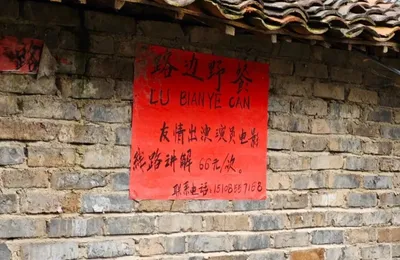 路边野餐
LU BIAN YE CAN
友情出演演员电影
线路讲解 66元/次.
联系电话